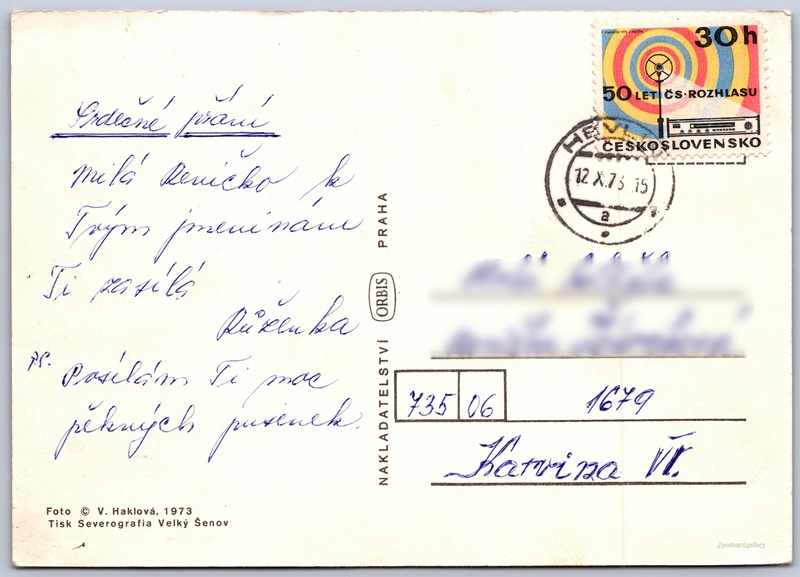 Srdečné přání
Milá Reničko k
Tvým jmeninám
Ti zasílá
Růženka
PS. Posílám Ti moc
pěkných pusinek.
Foto © V. Haklová, 1973
Tisk Severografia Velký Šenov
NAKLADATELSTVÍ ORBIS PRAHA
30h
50 LET ČS. ROZHLASU
ČESKOSLOVENSKO
12.X.73.15
a
735 06 1679
Karvina VI.